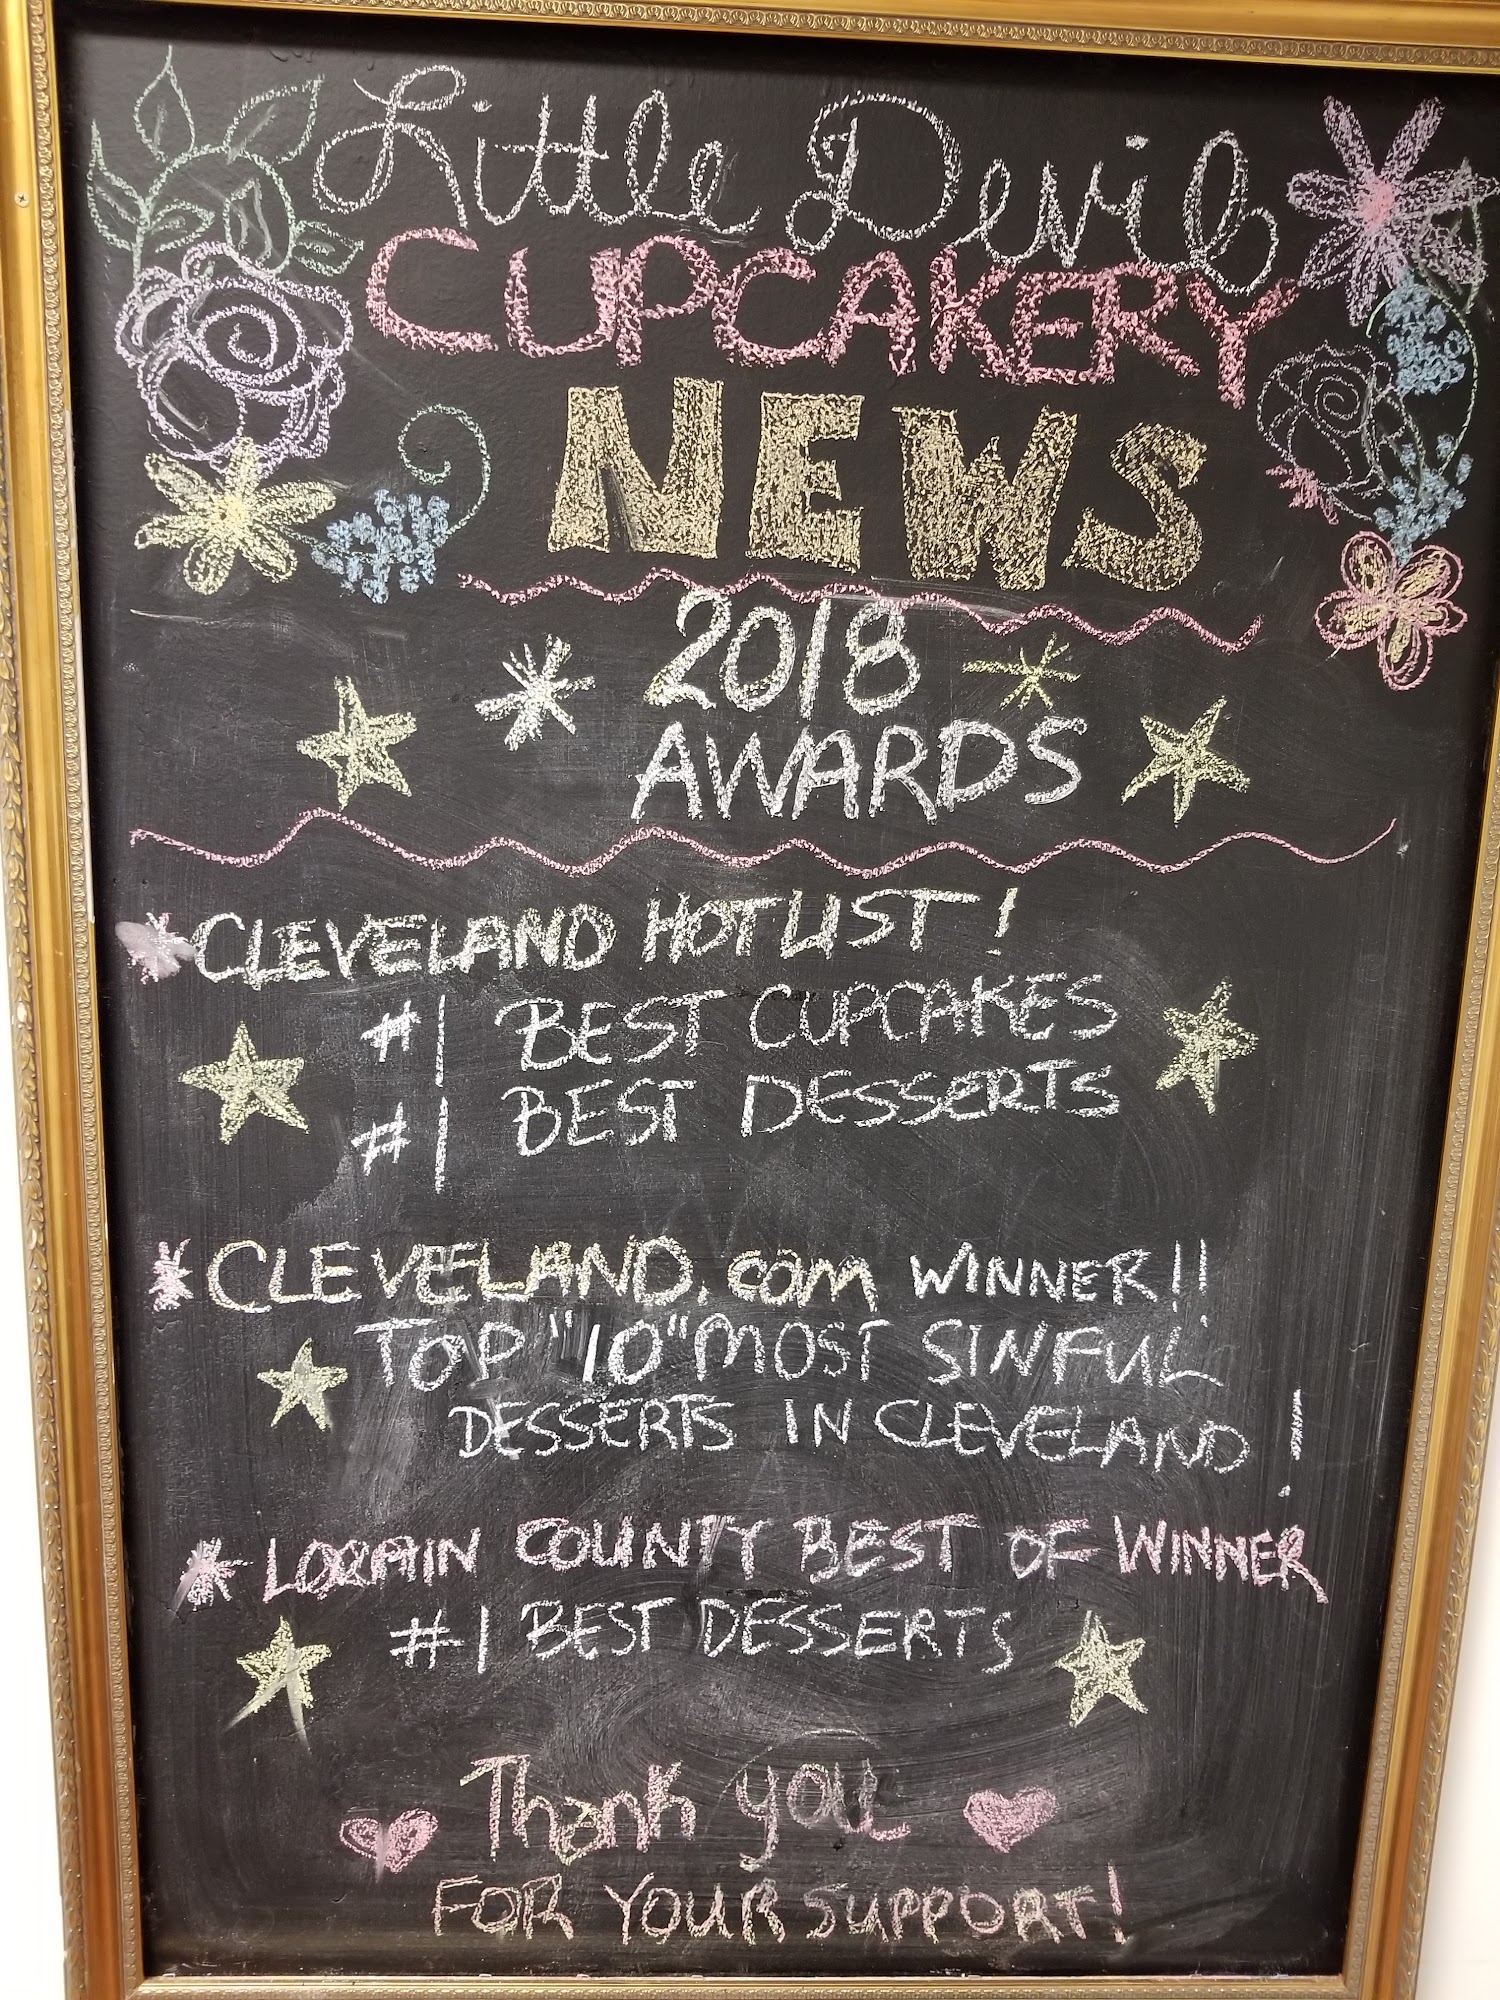 Little Devil
CUPCAKERY
NEWS
2018
AWARDS
*CLEVELAND HOTLIST!
#1 BEST CUPCAKES
#1 BEST DESSERTS
*CLEVELAND.com WINNER!!
TOP "10" MOST SINFUL
DESSERTS IN CLEVELAND!
*LORAIN COUNTY BEST OF WINNER
#1 BEST DESSERTS
Thank you
FOR YOUR SUPPORT!